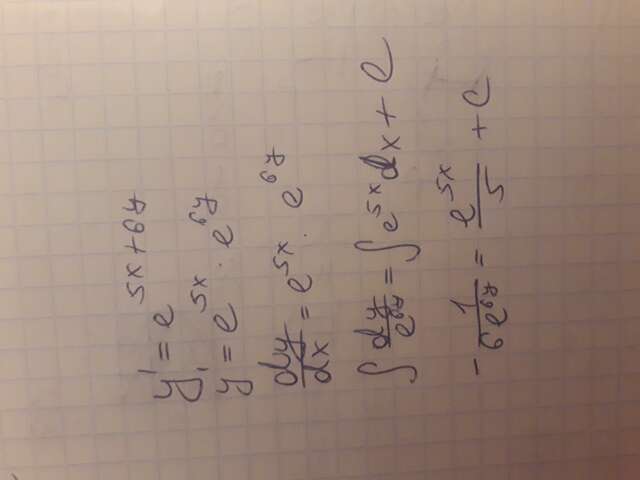 y' = e^{5x+6y}
y' = e^{5x} · e^{6y}
dy/dx = e^{5x} · e^{6y}
∫ dy/e^{6y} = ∫ e^{5x} dx + C
- 1/6e^{6y} = e^{5x}/5 + C